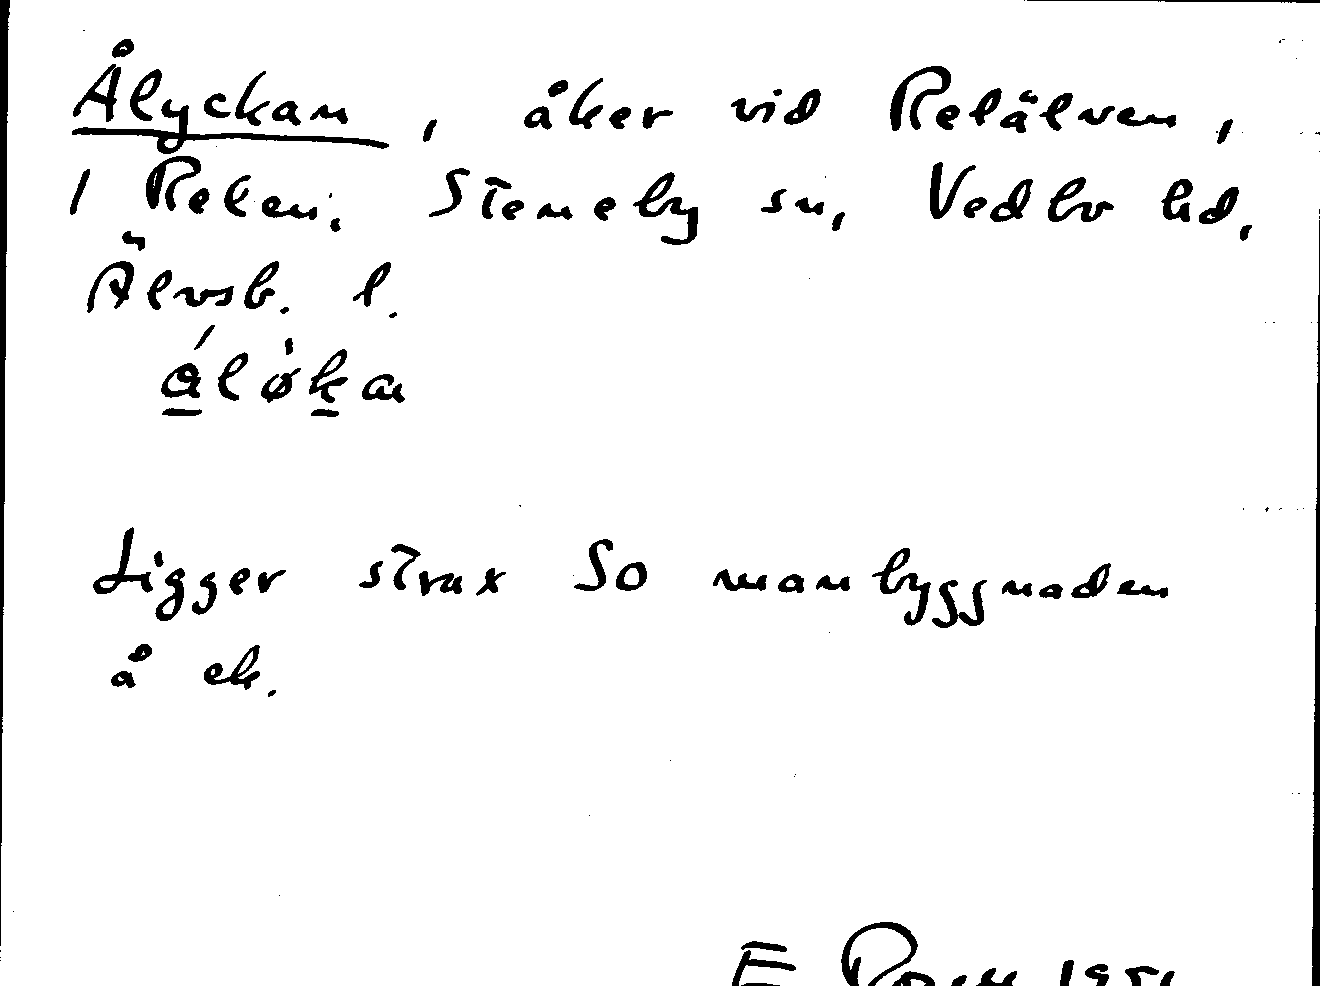 Ålyckan, åker vid Relälven,
1 Reken. Steneby sn, Vedbo hd,
Älvsb. l.
áløkan
Ligger strax So manbyggnaden
å ek.
E